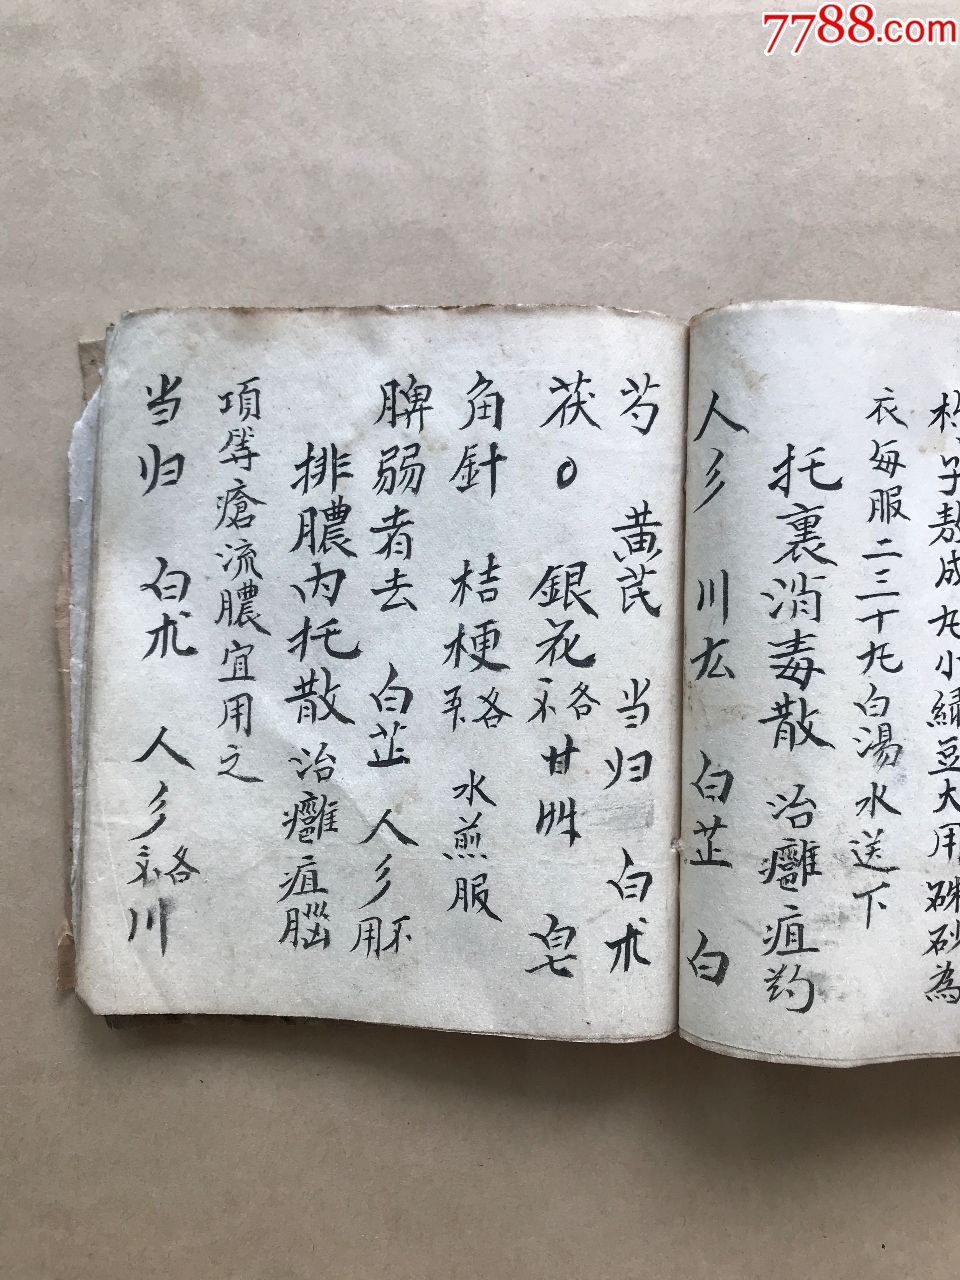 7788.com
杵子熬成丸小绿豆大用硃砂為
衣每服二三十丸白湯水送下
托裏消毒散 治癰疽
人参 川芎 白芷 白
芍 黄芪 当归 白术
茯〇 銀花各 甘艸 皂
角針 桔梗各 水煎服
脾弱者去 白芷 人参不用
排膿内托散 治癰疽腦
項等瘡流膿宜用之
当归 白术 人参各 川